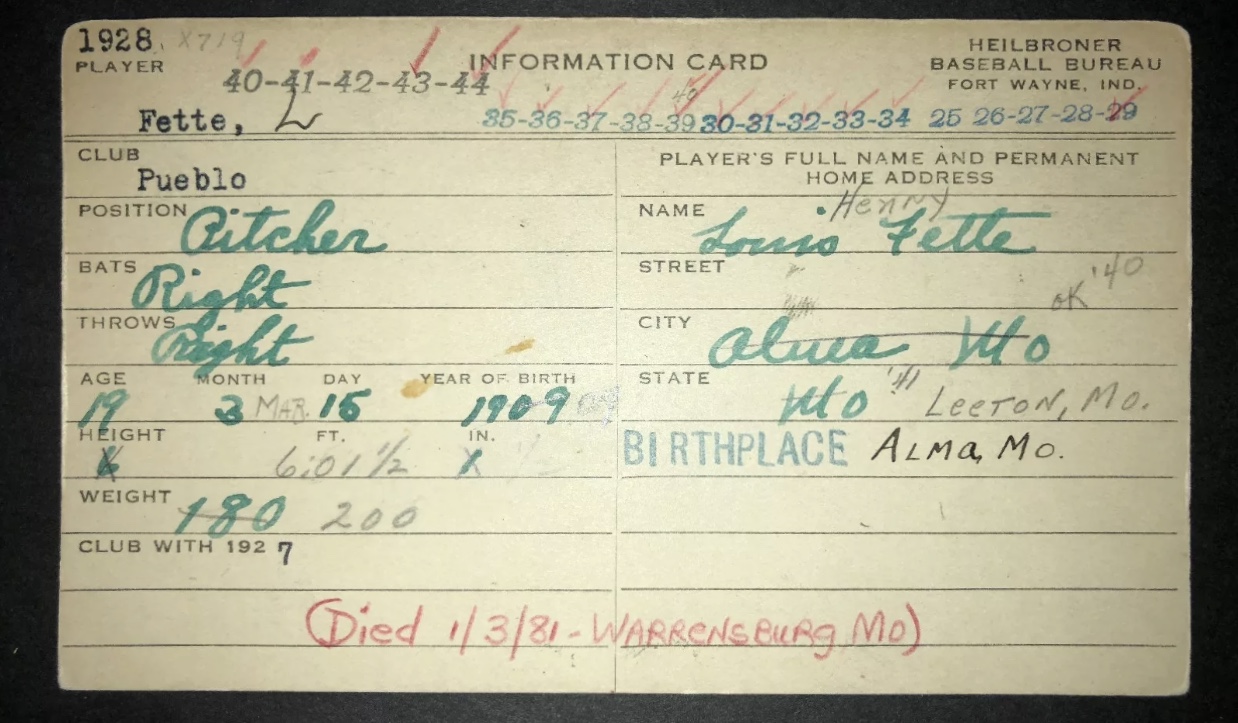 1928. X719
PLAYER
40-41-42-43-44
INFORMATION CARD
HEILBRONER
BASEBALL BUREAU
FORT WAYNE, IND.
Fette, L
40
35-36-37-38-39 30-31-32-33-34 25 26-27-28-29
CLUB
Pueblo
PLAYER'S FULL NAME AND PERMANENT
HOME ADDRESS
POSITION Pitcher
NAME Henny
Louis Fette
BATS Right
STREET
OK '40
THROWS Right
CITY Alma Mo
AGE MONTH DAY YEAR OF BIRTH
19 3 MAR. 15 1909
STATE Mo '41 LEETON, MO.
HEIGHT FT. IN.
6 6:01 1/2 1
BIRTHPLACE ALMA, MO.
WEIGHT 180 200
CLUB WITH 1927
(Died 1/3/81 - WARRENSBURG MO)